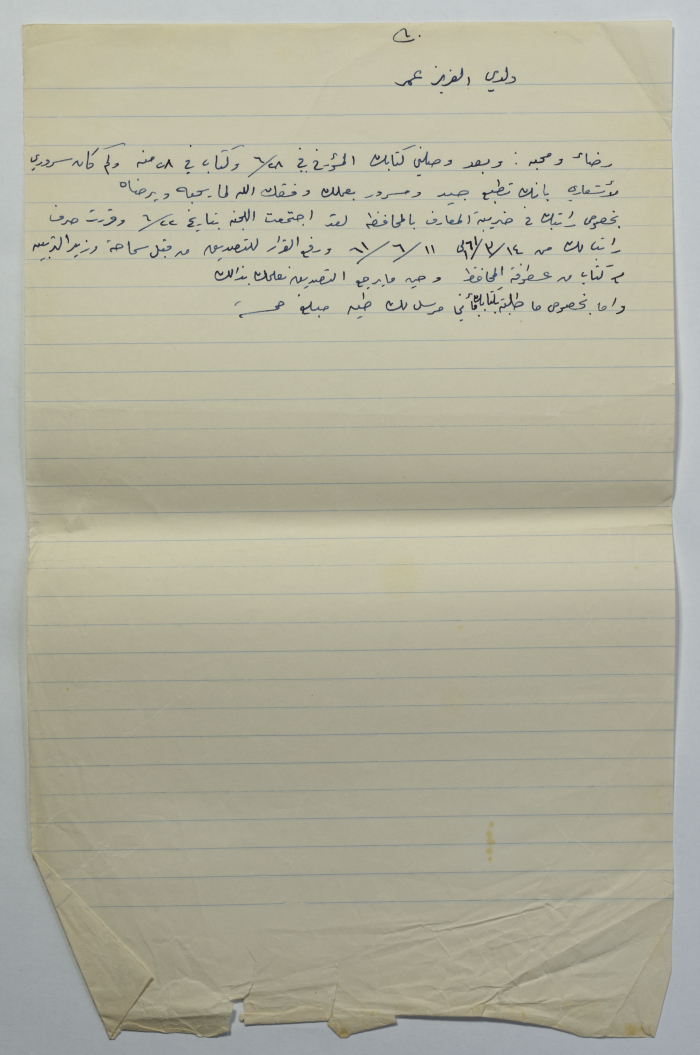 ولدي العزيز عمر
رضاء ومحبه : وبعد وصلني كتابك المؤرخ في ٦/٢٨ وكتاب في ٢٨ منه وكم كان سروري
لأشعاري بانك تطبع جيد ومسرور بعملك وفقك الله لما يحبه ويرضاه
بخصوص راتبك في ضريبة المعارف بالمحافظه لقد اجتمعت اللجنه بتاريخ ٦/٢٢ وقررت صرف
راتب لك من ١٤/٣/٦١ الى ١١/٦/٦١ ورفع القرار للتصديق من قبل سماحة وزير التربيه
مع كتاب من عطوفة المحافظ وحين ما يرجع التصديق نعلمك بذالك
واما بخصوص ما طلبته بكتابك فأنني مرسل لك طيه مبلغ